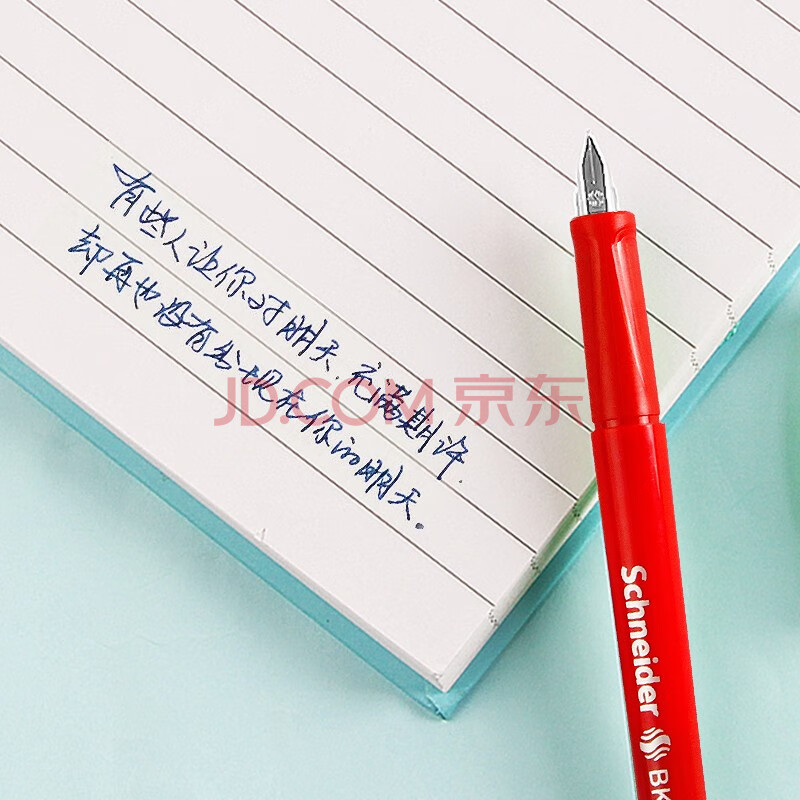 有些人让你对明天.充满期许.
却再也没有出现在你的明天。
JD.COM 京东
Schneider
BK